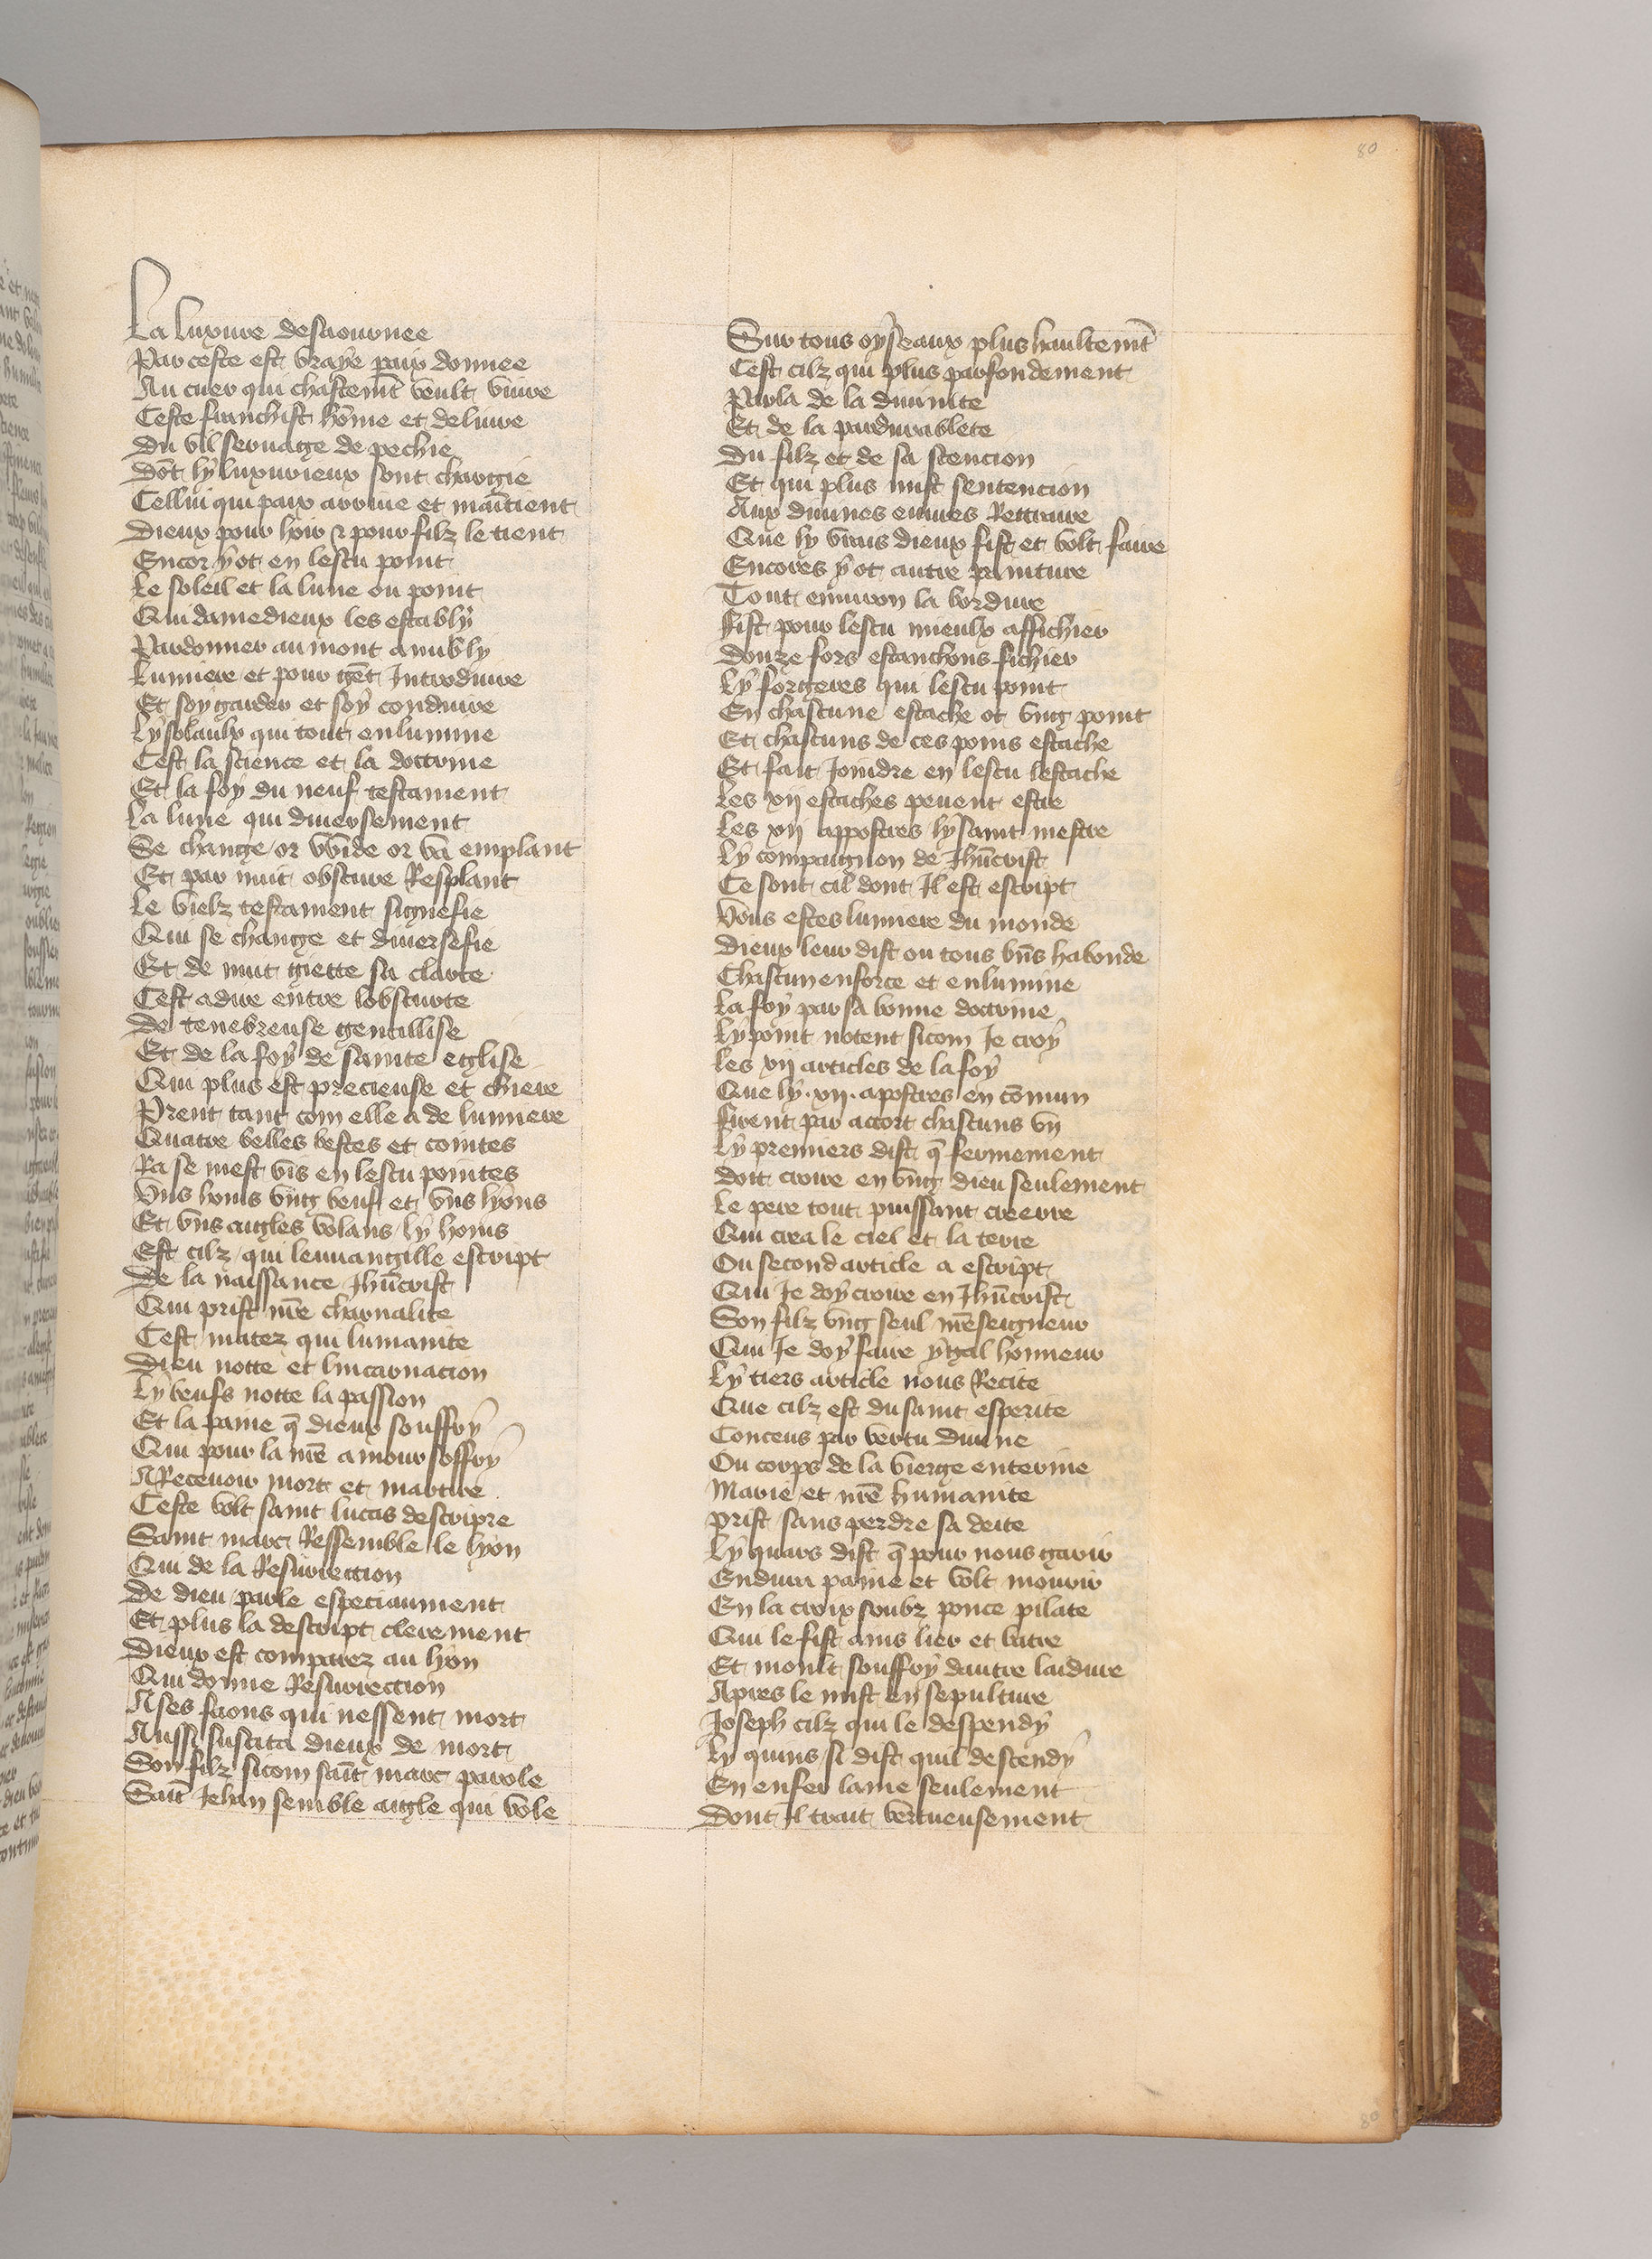 80
La luxure desaournee
Par ceste est vraye paix donnee
Au cuer qui chastemt veult viure
Ceste franchist hōme et deliure
Du vil seruaige de pechie
Dōt ly luxurieux sont chargie
Cellui qui paix arriue et maītient
Dieux pour hoir & pour filz le tient
Encor y ot en lescu point
Le soleil et la lune ou point
Qui damedieux les estably
Pardonner au mont anubly
Lumiere et pour gēt Introduire
Et soy garder et soy conduire
Ly solaulx qui tout enlumine
Cest la science et la doctrine
Et la foy du neuf testament
La lune qui diuersement
Se change or vuide or va emplant
Et par nuit obscure Resplant
Le vielz testament signefie
Qui se change et diuersefie
Et de nuit giette sa clarte
Cest adire entre lobscurte
De tenebreuse gentillise
Et de la foy de sainte eglise
Qui plus est precieuse et chiere
Prent tant com elle a de lumiere
Quatre belles bestes et cointes
Ra se mest vis en lescu pointes
Vns homs vng beuf et vns lyons
Et vns aigles volans ly homs
Est cilz qui leuuangille escript
De la naissance Jhūcrist
Qui prist nr̄e charnalite
Cest matez qui lumanite
Dieu notte et lincarnacion
Ly beufs notte la passion
Et la paine q̄ dieux souffry
Qui pour la nr̄e amour soffry
A Receuoir mort et martire
Ceste volt saint lucas descripre
Saint marc Ressemble le lyon
Qui de la Resurrection
De dieu parle especiaument
Et plus la descript clerement
Dieux est comparez au lyon
Qui donne Resurrection
A ses faons qui nessent mort
Aussi suscita dieux de mort
Son filz sicom saīt marc parole
Saīt Jehan semble aigle qui vole
Sur tous oyseaux plus haultemt
Cest cilz qui plus parfondement
Parla de la diuinite
Et de la pardurablete
Du filz et de sa scencion
Et qui plus mist sentencion
Aux diuines euures Retraire
Que ly vrais dieux fist et volt faire
Encores y ot autre painture
Tout enuiron la bordure
Fist pour lescu mieulx affichier
Douze fors estanchons fichier
Ly forgeres qui lescu point
En chascune estache ot vng point
Et chascuns de ces poins estache
Et fait Joindre en lescu lestache
Les xij estaches peuent estre
Les xij appostres ly saint mestre
Ly compaignon de Jhūcrist
Ce sont cil dont Il est escript
Vous estes lumiere du monde
Dieux leur dist ou tous bn̄s habonde
Chascun enforce et enlumine
La foy par sa bonne doctrine
Ly point notent sicom Je croy
Les xij articles de la foy
Que ly .xij. apostres en cōmun
Firent par accort chascuns vn
Ly premiers dist q̄ fermement
Doit croire en vng dieu seulement
Le pere tout puissant creerre
Qui crea le ciel et la terre
Ou second article a escript
Qui Je doy croire en Jhūcrist
Son filz vng seul nr̄e seigneur
Qui Je doy faire ygal honneur
Ly tiers article nous Recite
Que cilz est du saint esperite
Conceus par vertu diuine
Ou corps de la vierge enterine
Marie et nr̄e humanite
Prist sans perdre sa deite
Ly quars dist q̄ pour nous garir
Endura paine et volt mourir
En la croix soubz ponce pilate
Qui le fist ains lier et batre
Et moult souffry dautre laidure
Apres le mist en sepulture
Joseph cilz qui le despendy
Ly quins si dist quil descendy
En enfer lame seulement
Dont Il trait vertueusement
80